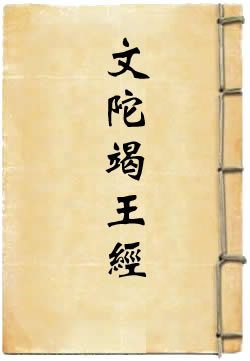 文陀竭王經